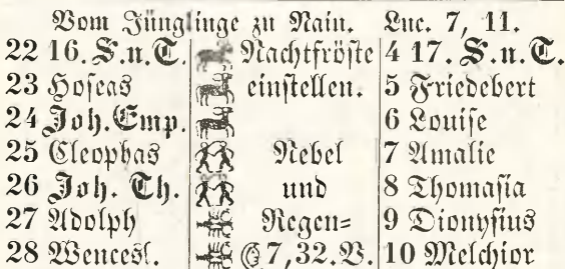 Vom Jünglinge zu Nain. Luc. 7, 11.
22 16. S. n. T. Nachtfröste 4 17. S. n. T.
23 Hoseas einstellen. 5 Friedebert
24 Joh. Emp. 6 Louise
25 Cleophas Nebel 7 Amalie
26 Joh. Th. und 8 Thomasia
27 Adolph Regen= 9 Dionysius
28 Wencesl. 7,32. V. 10 Melchior